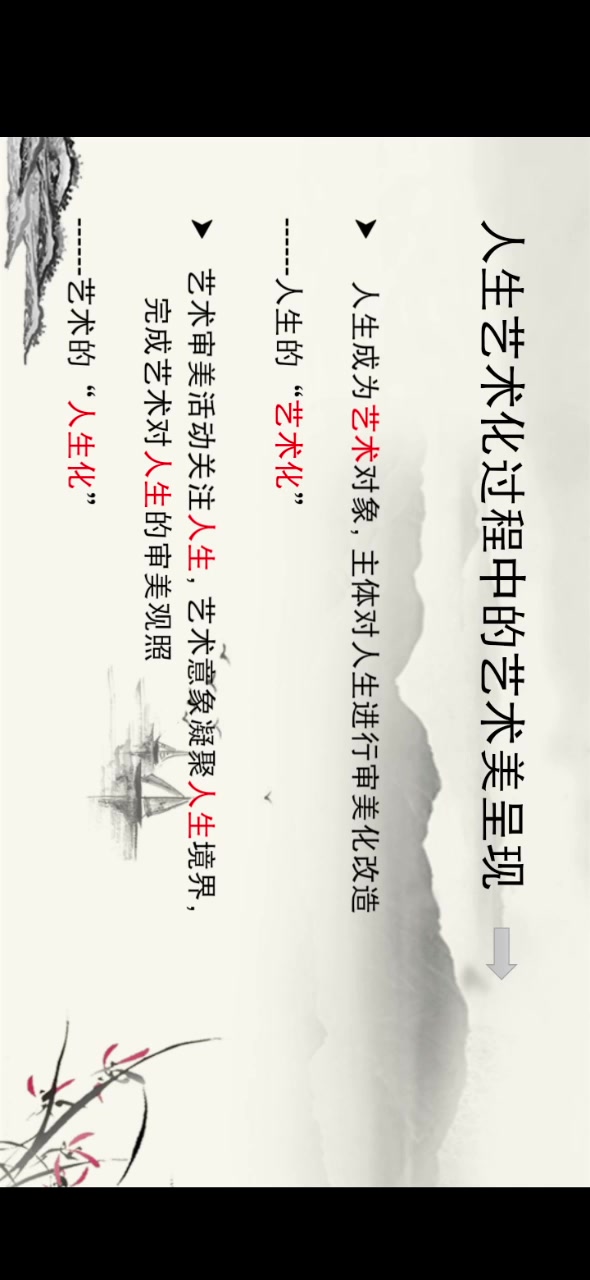 人生艺术化过程中的艺术美呈现
➤ 人生成为艺术对象，主体对人生进行审美化改造
------人生的“艺术化”
➤ 艺术审美活动关注人生，艺术意象凝聚人生境界，
完成艺术对人生的审美观照
------艺术的“人生化”